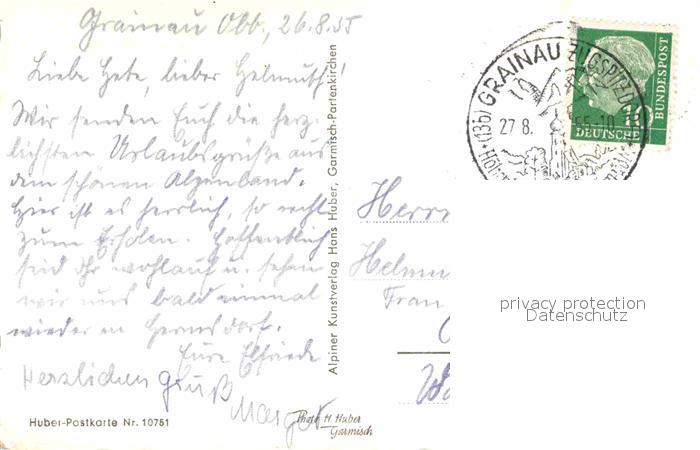 Grainau Obb., 26.8.55
Liebe Hete, lieber Helmuth!
Wir senden Euch die herz-
lichsten Urlaubsgrüße aus
dem schönen Alpenland.
Hier ist es herrlich, so recht
zum Erholen. Hoffentlich
seid Ihr wohlauf u. sehen
wir uns bald einmal
wieder in Hernsdorf.
Eure Elfriede
Herzlichen Gruß
Margot
Huber-Postkarte Nr. 10751
Photo H. Huber
Garmisch
Alpiner Kunstverlag Hans Huber, Garmisch-Partenkirchen
(13b) GRAINAU ZUGSPITZDORF
27 8. 55-10
10
DEUTSCHE
BUNDESPOST
Herrn
Helmu
Fran
privacy protection
Datenschutz